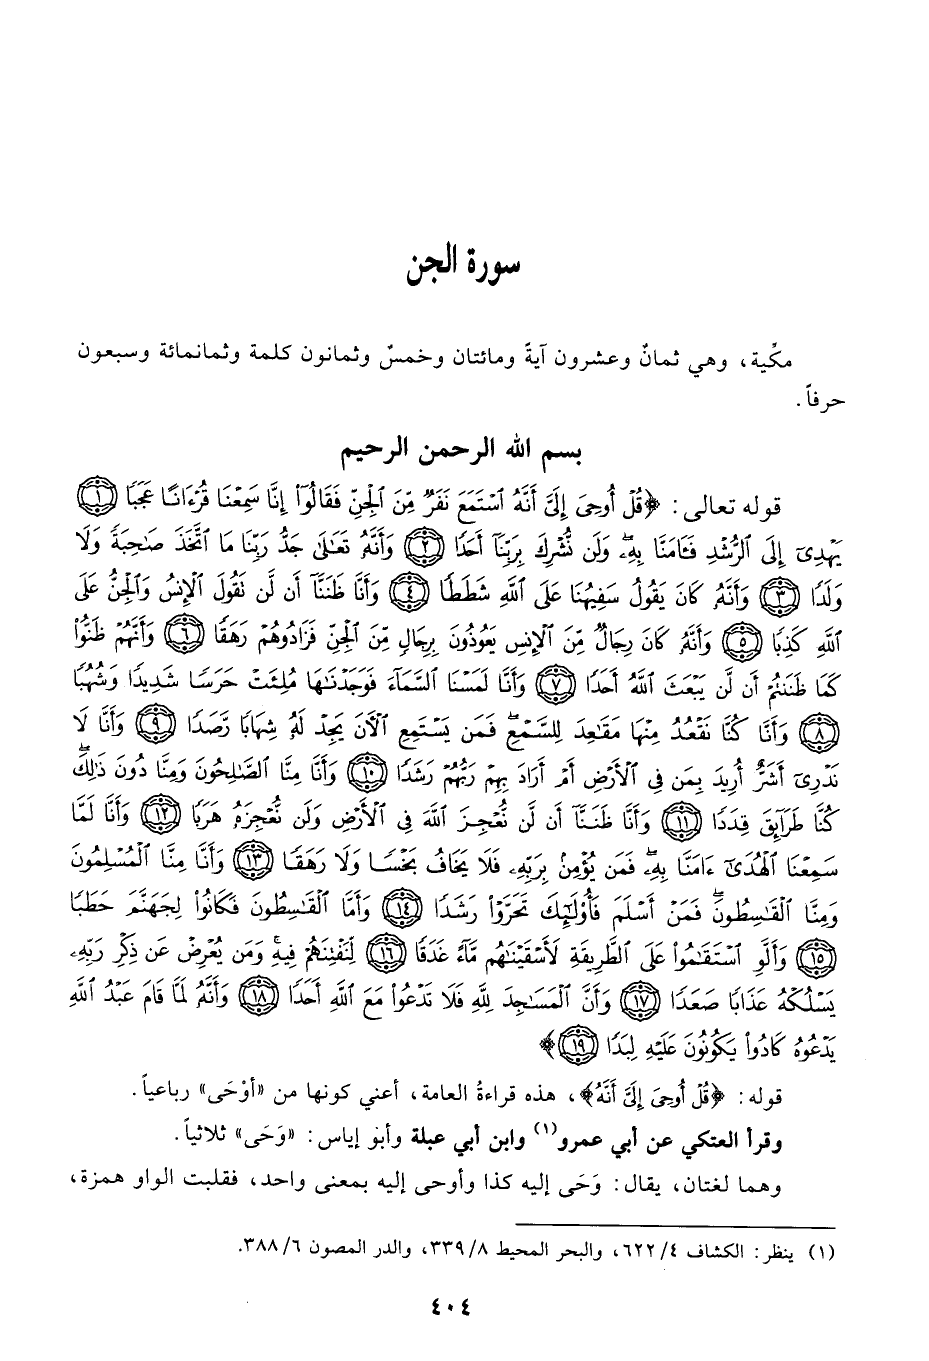 سورة الجن
مكِّية، وهي ثمانٌ وعشرون آيةً ومائتان وخمسٌ وثمانون كلمة وثمانمائة وسبعون
حرفاً.
بسم الله الرحمن الرحيم
قوله تعالى: ﴿قُلۡ أُوحِيَ إِلَيَّ أَنَّهُ ٱسۡتَمَعَ نَفَرٞ مِّنَ ٱلۡجِنِّ فَقَالُوٓاْ إِنَّا سَمِعۡنَا قُرۡءَانًا عَجَبٗا ١
يَهۡدِيٓ إِلَى ٱلرُّشۡدِ فَـَٔامَنَّا بِهِۦۖ وَلَن نُّشۡرِكَ بِرَبِّنَآ أَحَدٗا ٢ وَأَنَّهُۥ تَعَٰلَىٰ جَدُّ رَبِّنَا مَا ٱتَّخَذَ صَٰحِبَةٗ وَلَا
وَلَدٗا ٣ وَأَنَّهُۥ كَانَ يَقُولُ سَفِيهُنَا عَلَى ٱللَّهِ شَطَطٗا ٤ وَأَنَّا ظَنَنَّآ أَن لَّن تَقُولَ ٱلۡإِنسُ وَٱلۡجِنُّ عَلَى
ٱللَّهِ كَذِبٗا ٥ وَأَنَّهُۥ كَانَ رِجَالٞ مِّنَ ٱلۡإِنسِ يَعُوذُونَ بِرِجَالٖ مِّنَ ٱلۡجِنِّ فَزَادُوهُمۡ رَهَقٗا ٦ وَأَنَّهُمۡ ظَنُّواْ
كَمَا ظَنَنتُمۡ أَن لَّن يَبۡعَثَ ٱللَّهُ أَحَدٗا ٧ وَأَنَّا لَمَسۡنَا ٱلسَّمَآءَ فَوَجَدۡنَٰهَا مُلِئَتۡ حَرَسٗا شَدِيدٗا وَشُهُبٗا
٨ وَأَنَّا كُنَّا نَقۡعُدُ مِنۡهَا مَقَٰعِدَ لِلسَّمۡعِۖ فَمَن يَسۡتَمِعِ ٱلۡأٓنَ يَجِدۡ لَهُۥ شِهَابٗا رَّصَدٗا ٩ وَأَنَّا لَا
نَدۡرِيٓ أَشَرٌّ أُرِيدَ بِمَن فِي ٱلۡأَرۡضِ أَمۡ أَرَادَ بِهِمۡ رَبُّهُمۡ رَشَدٗا ١٠ وَأَنَّا مِنَّا ٱلصَّٰلِحُونَ وَمِنَّا دُونَ ذَٰلِكَۖ
كُنَّا طَرَآئِقَ قِدَدٗا ١١ وَأَنَّا ظَنَنَّآ أَن لَّن نُّعۡجِزَ ٱللَّهَ فِي ٱلۡأَرۡضِ وَلَن نُّعۡجِزَهُۥ هَرَبٗا ١٢ وَأَنَّا لَمَّا
سَمِعۡنَا ٱلۡهُدَىٰٓ ءَامَنَّا بِهِۦۖ فَمَن يُؤۡمِنۢ بِرَبِّهِۦ فَلَا يَخَافُ بَخۡسٗا وَلَا رَهَقٗا ١٣ وَأَنَّا مِنَّا ٱلۡمُسۡلِمُونَ
وَمِنَّا ٱلۡقَٰسِطُونَۖ فَمَنۡ أَسۡلَمَ فَأُوْلَٰٓئِكَ تَحَرَّوۡاْ رَشَدٗا ١٤ وَأَمَّا ٱلۡقَٰسِطُونَ فَكَانُواْ لِجَهَنَّمَ حَطَبٗا
١٥ وَأَلَّوِ ٱسۡتَقَٰمُواْ عَلَى ٱلطَّرِيقَةِ لَأَسۡقَيۡنَٰهُم مَّآءً غَدَقٗا ١٦ لِّنَفۡتِنَهُمۡ فِيهِۚ وَمَن يُعۡرِضۡ عَن ذِكۡرِ رَبِّهِۦ
يَسۡلُكۡهُ عَذَابٗا صَعَدٗا ١٧ وَأَنَّ ٱلۡمَسَٰجِدَ لِلَّهِ فَلَا تَدۡعُواْ مَعَ ٱللَّهِ أَحَدٗا ١٨ وَأَنَّهُۥ لَمَّا قَامَ عَبۡدُ ٱللَّهِ
يَدۡعُوهُ كَادُواْ يَكُونُونَ عَلَيۡهِ لِبَدٗا ١٩﴾
قوله: ﴿قُلۡ أُوحِيَ إِلَيَّ أَنَّهُ﴾، هذه قراءةُ العامة، أعني كونها من «أوْحَى» رباعياً.
وقرأ العتكي عن أبي عمرو(١) وابن أبي عبلة وأبو إياس: «وَحَى» ثلاثياً.
وهما لغتان، يقال: وَحَى إليه كذا وأوحى إليه بمعنى واحد، فقلبت الواو همزة،
(١) ينظر: الكشاف ٤/ ٦٢٢، والبحر المحيط ٨/ ٣٣٩، والدر المصون ٦/ ٣٨٨.
٤٠٤